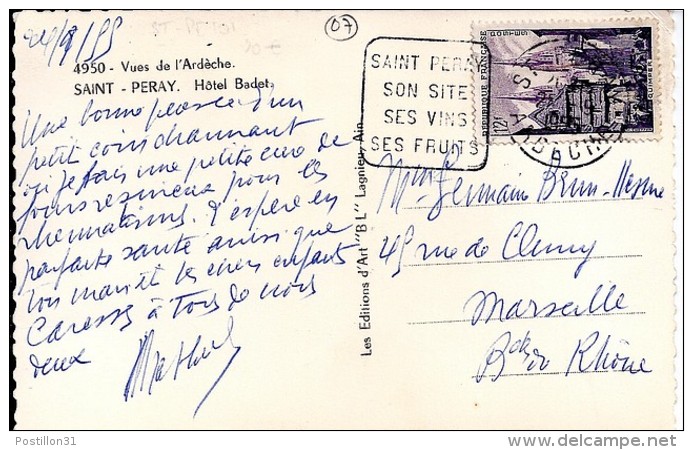 24/8/55
ST-PE
07
4950 - Vues de l'Ardèche.
SAINT - PERAY. Hôtel Badet.
Une bonne pensée d'un
petit coin charmant
où je fais une petite cure de
pour les
rhumatismes. J'espère en
parfaite santé ainsi que
ton mari et les chers enfants
Caresses à Tous de nous
deux
Les Editions d'Art "BL" Lagnieu, Ain
SAINT PERAY
SON SITE
SES VINS
SES FRUITS
REPUBLIQUE FRANÇAISE
POSTES
12F
QUIMPER
ARDECHE
Mme Germain Brun
45 rue de Cluny
Marseille
Bches du Rhône
Postillon31
delcampe.net